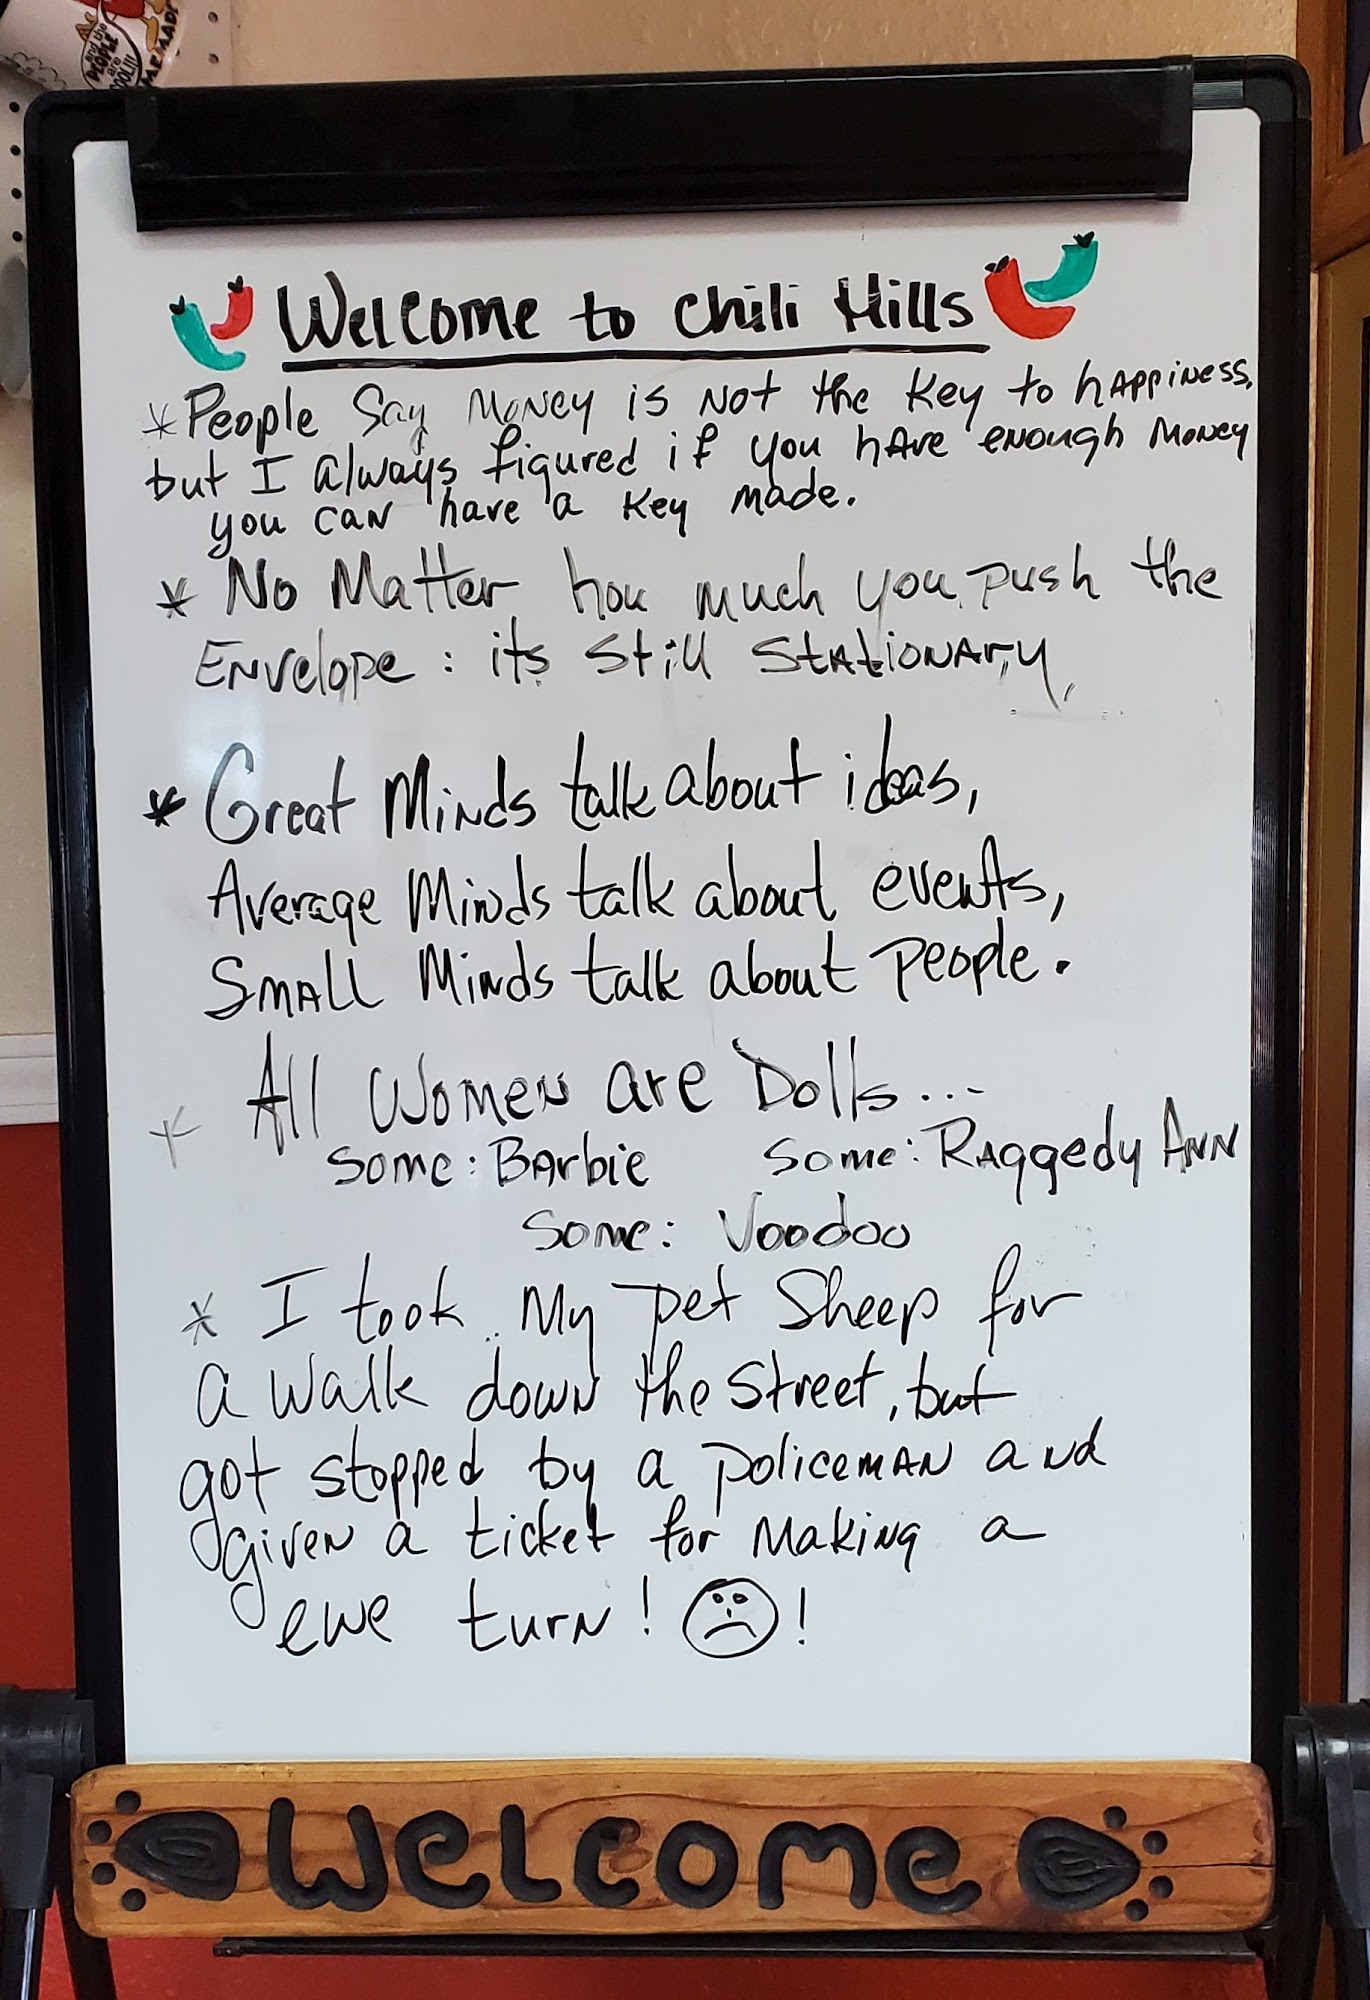 and the
PEOPLE
are
COOL!!!
Welcome to Chili Hills
* People Say Money is Not the Key to happiness,
but I always figured if you have enough Money
you can have a Key made.
* No Matter how much you push the
Envelope : its still stationary,
* Great Minds talk about ideas,
Average Minds talk about events,
Small Minds talk about people.
* All Women are Dolls...
Some: Barbie Some: Raggedy Ann
Some: Voodoo
* I took My pet Sheep for
a walk down the street, but
got stopped by a policeman and
given a ticket for Making a
ewe turn! ☹!
Welcome